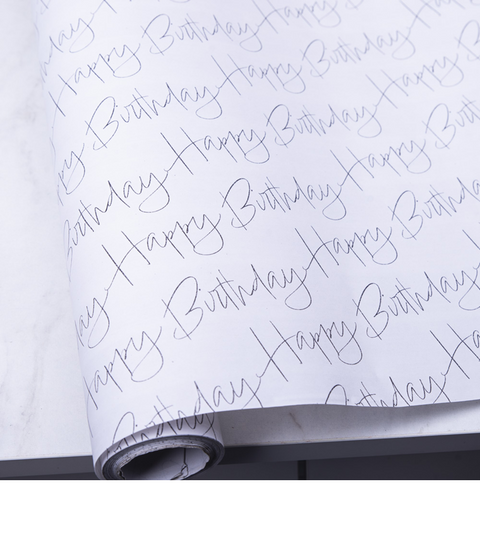 day
Happy Birthday Happy
py Birthday Happy Birthday Happy
Birthday Happy Birthday Happy
day Happy Birthday Happy
Happy Birthday Happy Birthday
Birthday Happy Birthday
Birthday Ha